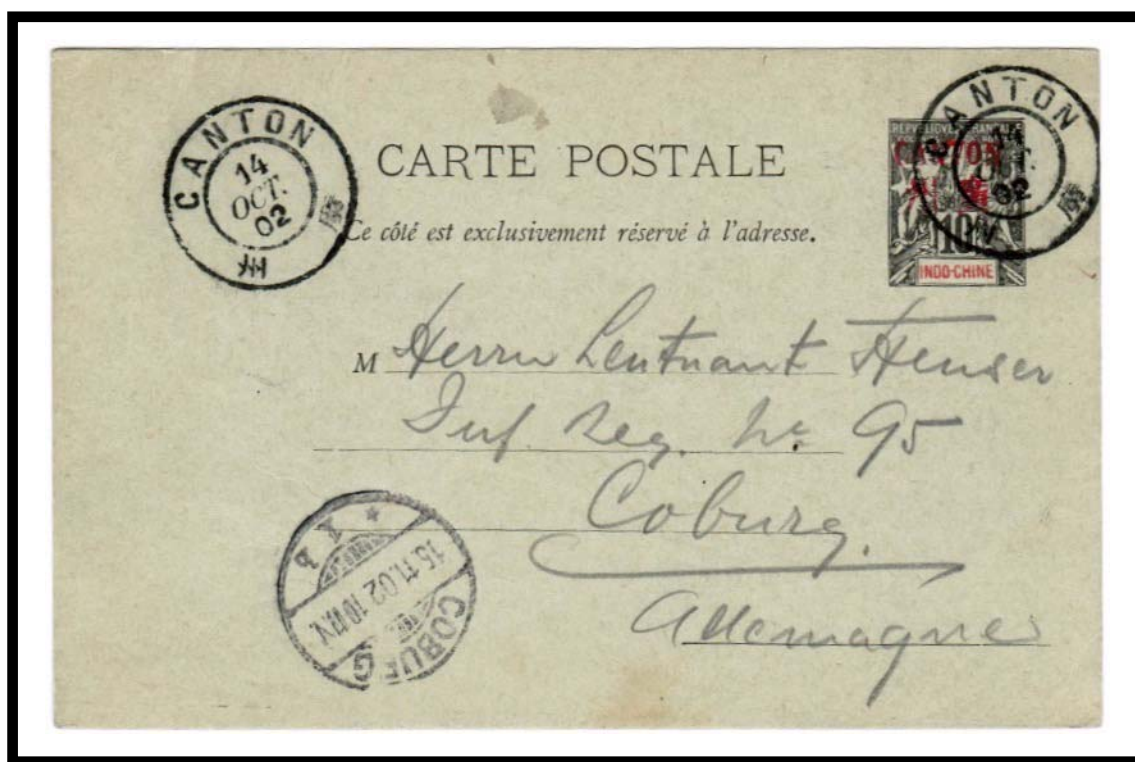 CANTON
14
OCT.
02
廣
州
CARTE POSTALE
Ce côté est exclusivement réservé à l'adresse.
REPUBLIQUE FRANÇAISE
CANTON
州
10
INDO-CHINE
CANTON
OCT.
02
廣
州
M Herrn Leutnant Heuser
Inf. Reg. No 95
Coburg.
Allemagne
COBURG
15.11.02 10-11V.